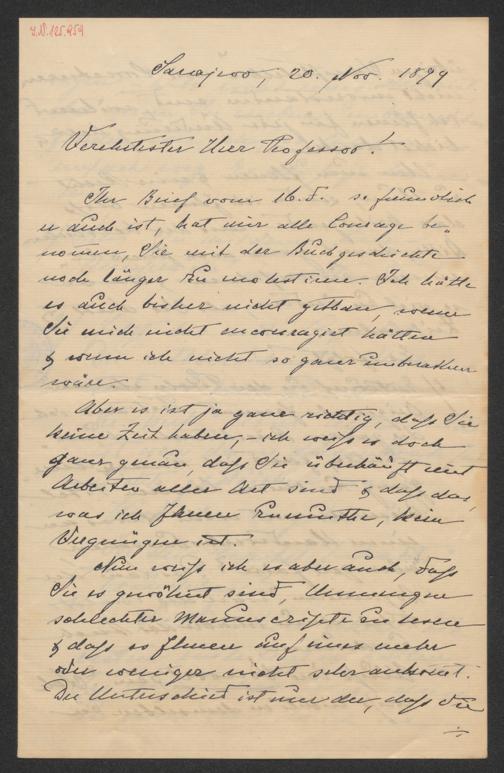 J.N. 125.959
Sarajevo, 20. Nov. 1899
Verehrtester Herr Professor!
Ihr Brief vom 16. d. so freundlich
er auch ist, hat mir alle Courage be-
nommen, Sie mit der Buchgeschichte
noch länger zu molestiren. Ich hätte
es auch bisher nicht gethan, wenn
Sie mich nicht encouragiet hätten
& wenn ich nicht so ganz unberathen
wäre.
Aber es ist ja ganz richtig, daß Sie
keine Zeit haben, – ich weiß es doch
ganz genau, daß Sie überhäuft mit
Arbeiten aller Art sind & daß das,
was ich Ihnen zumuthe, kein
Vergnügen ist.
Nun weiß ich es aber auch, daß
Sie es gewöhnt sind, Unmengen
schlechter Manuscripte zu lesen
& daß es Ihnen auf eines mehr
oder weniger nicht sehr ankomt.
Der Unterschied ist nur der, daß die